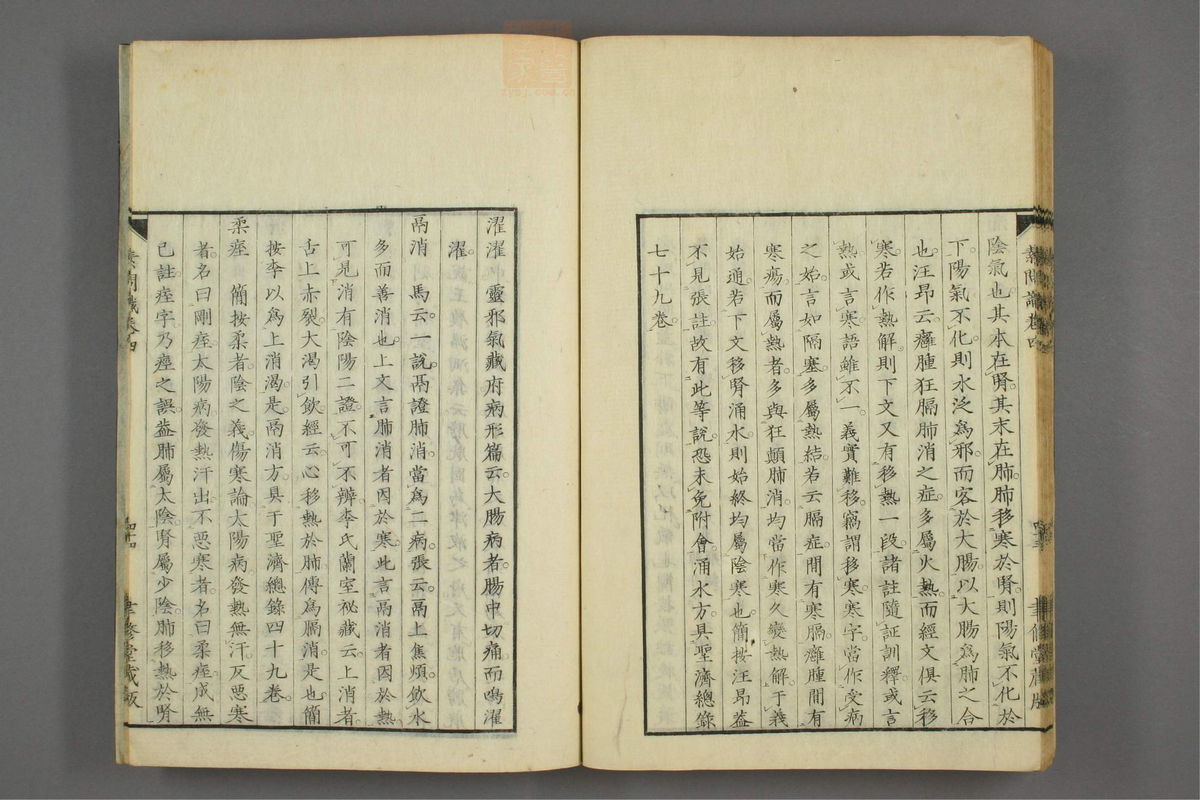 陰氣也其本在腎其末在肺肺移寒於腎則陽氣不化於
下陽氣不化則水泛爲邪而客於大腸以大腸爲肺之合
也汪昂云癰腫狂膈肺消之症多屬火熱而經文俱云移
寒若作熱解則下文又有移熱一段諸註隨証訓釋或言
熱或言寒語雖不一義實難移竊謂移寒寒字當作受病
之始言如隔塞多屬熱結若云膈症間有寒膈癰腫間有
寒瘍而屬熱者多與狂顛肺消均當作寒久變熱解于義
始通若下文移腎涌水則始終均屬陰寒也簡按汪昂蓋
不見張註故有此等說恐未免附會涌水方具聖濟總錄
七十九卷
濯濯 靈邪氣藏府病形篇云大腸病者腸中切痛而鳴濯
濯
鬲消 馬云一說鬲證肺消當爲二病張云鬲上焦煩飲水
多而善消也上文言肺消者因於寒此言鬲消者因於熱
可見消有陰陽二證不可不辨李氏蘭室祕藏云上消者
舌上赤裂大渴引飲經云心移熱於肺傳爲膈消是也簡
按李以爲上消渴是鬲消方具于聖濟總錄四十九卷
柔痓 簡按柔者陰之義傷寒論太陽病發熱無汗反惡寒
者名曰剛痓太陽病發熱汗出不惡寒者名曰柔痓成無
已註痓字乃痙之誤蓋肺屬太陰腎屬少陰肺移熱於腎
素問識卷四
聿修堂藏版